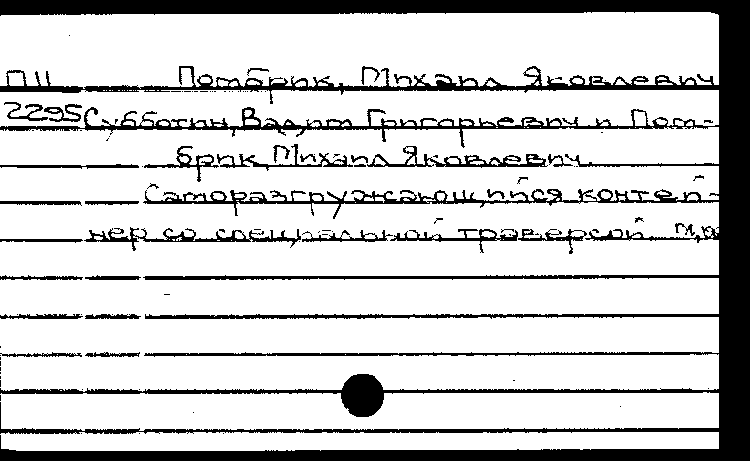 П11 Потбрик, Михаил Яковлевич
2295 Субботин, Вадим Григорьевич и Пот-
брик, Михаил Яковлевич.
Саморазгружающийся контей-
нер со специальной траверсой. М,